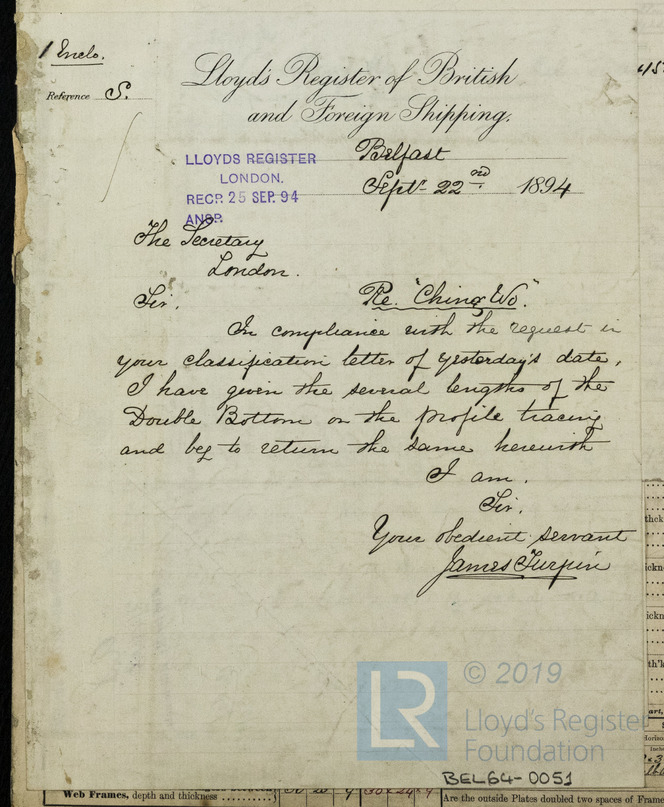 1 Enclo.
Reference S.
Lloyd's Register of British
and Foreign Shipping.
Belfast
Sept 22nd 1894
LLOYDS REGISTER
LONDON.
RECP. 25 SEP. 94
ANSP.
The Secretary
London.
Sir.
Re. "Ching Wo".
In compliance with the request in
your classification letter of yesterday's date,
I have given the several lengths of the
Double Bottom on the profile tracing
and beg to return the same herewith
I am.
Sir.
Your obedient servant
James Turpin
LR
© 2019
Lloyd's Register
Foundation
BEL64-0051
Web Frames, depth and thickness
Are the outside Plates doubled two spaces of Frame